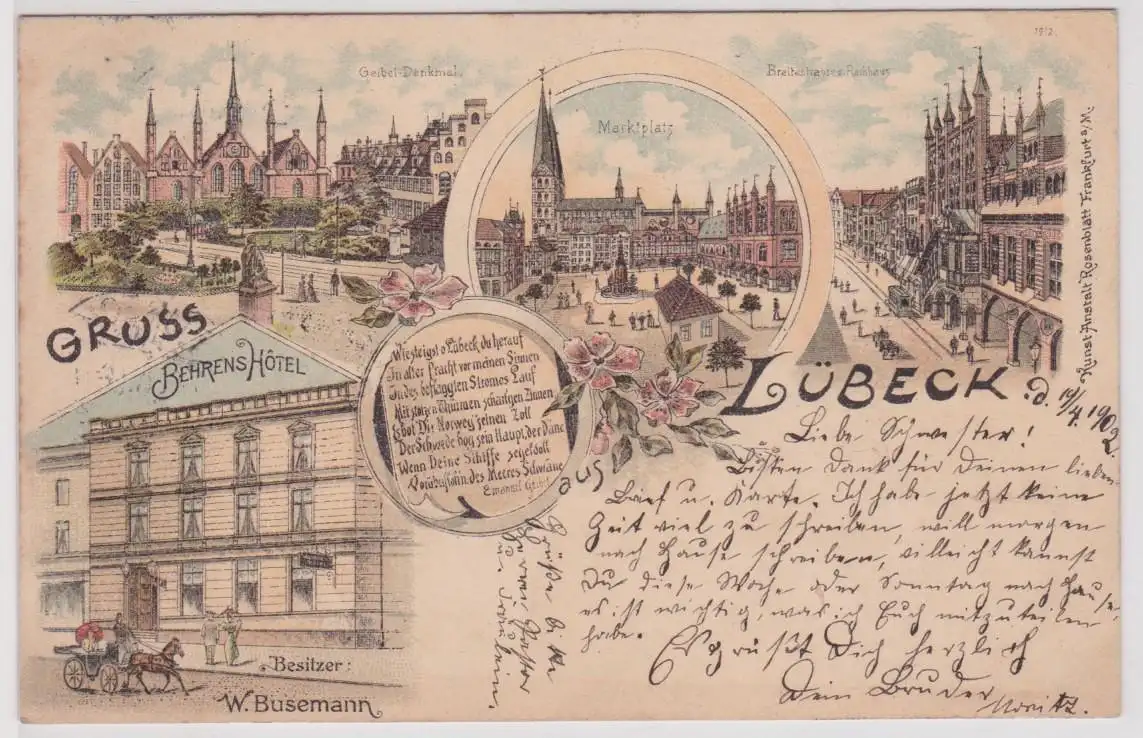 1912.
Geibel-Denkmal.
Marktplatz
Breitestrasse u. Rathhaus
Kunst-Anstalt Rosenblatt Frankfurt a/M.
GRUSS
aus
LÜBECK
BEHRENS HÔTEL
Wie steigst o Lübeck, du herauf
In alter Pracht vor meinen Sinnen
An des beflaggten Stromes Lauf
Mit stolzen Thürmen, schartigen Zinnen
Es bot Dir Norweg seinen Zoll
Der Schwede bog sein Haupt, der Däne
Wenn Deine Schiffe segelvoll
Vorüberflohn, des Meeres Schwäne
Emanuel Geibel
Besitzer:
W. Busemann
d. 19/4 1902
Liebe Schwester!
Besten Dank für Deinen lieben
Brief u. Karte. Ich habe jetzt keine
Zeit viel zu schreiben, will morgen
nach Hause schreiben, villeicht kannst
Du diese Woche oder Sonntag nach Hause
es ist wichtig, was ich Euch mitzuteilen
habe.
Es grüßt Dich herzlich
Dein Bruder
Moritz.
Grüße bitte
Herrn Pastor
u. Fräulein.